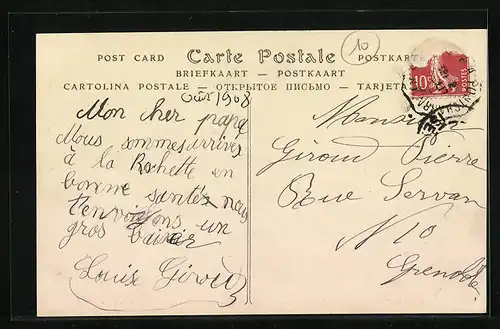 10
POST CARD Carte Postale POSTKARTE
BRIEFKAART — POSTKAART
CARTOLINA POSTALE — ОТКРЫТОЕ ПИСЬМО — TARJETA
Out 1908
Mon cher papa
Nous sommes arrivés
à la Rochette en
bonne santée nous
t'envoiyons un
gros baiser
Louise Giroud
10c POSTES
Monsieur
Giroud Pierre
Rue Servan
N 10
Grenoble